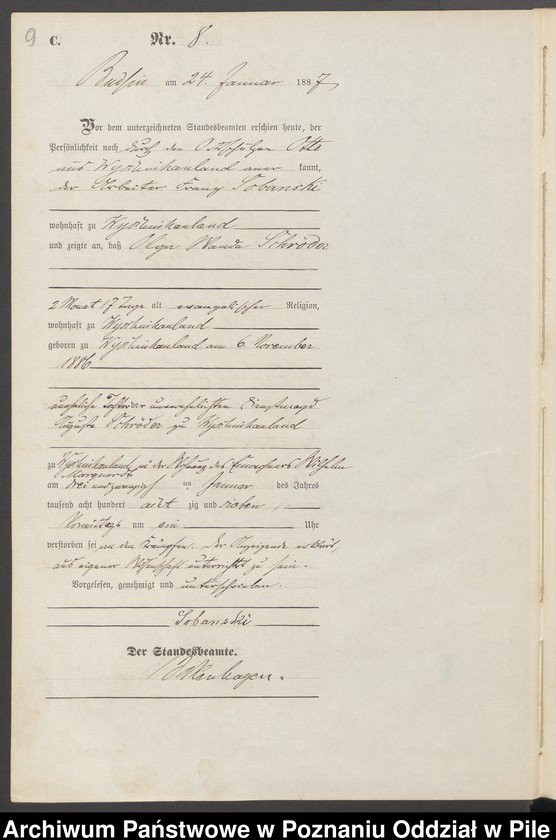 9 C. Nr. 8.
Budsin am 24. Januar 1887
Vor dem unterzeichneten Standesbeamten erschien heute, der
Persönlichkeit nach durch den Ortsschulzen Otto
aus Wyschinkauland aner kannt,
der Arbeiter Franz Sobanski
wohnhaft zu Wyschinkauland
und zeigte an, daß Olga Wanda Schröder
2 Monat 17 Tage alt evangelischer Religion,
wohnhaft zu Wyschinkauland
geboren zu Wyschinkauland am 6. November
1886
uneheliche Tochter der unverehelichten Dienstmagd
Auguste Schröder zu Wyschinkauland
zu Wyschinkauland, in der Wohnung des Einwohners Wilhelm
Marquardt
am drei und zwanzigsten Januar des Jahres
tausend acht hundert acht zig und sieben,
Vormittags um ein Uhr
verstorben sei an den Krämpfen. Der Anzeigende erklärt,
aus eigener Wissenschaft unterrichtet zu sein.
Vorgelesen, genehmigt und unterschrieben.
Sobanski
Der Standesbeamte.
Archiwum Państwowe w Poznaniu Oddział w Pile